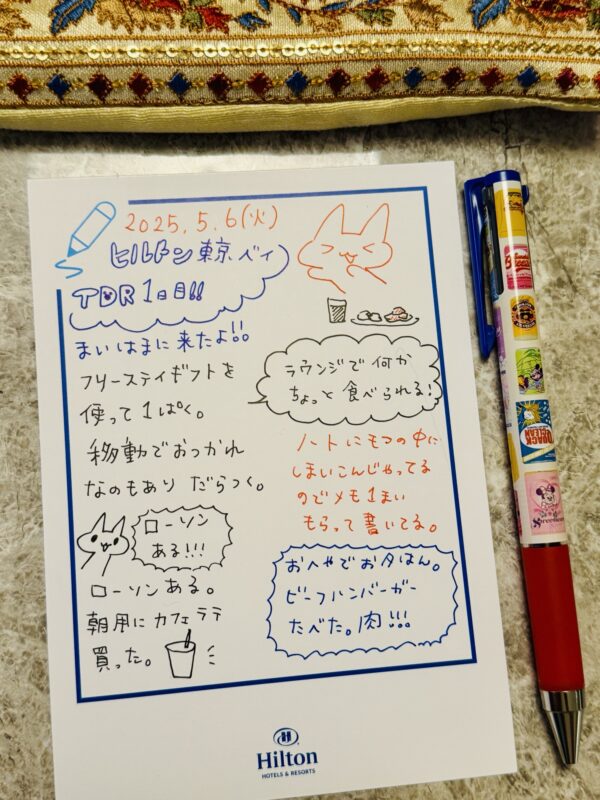 2025.5.6(火)
ヒルトン東京ベイ
TDR1日目!!
まいはまに来たよ!!
フリーステイギフトを
使って1ぱく。
移動でおつかれ
なのもあり だらつく。
ローソン
ある!!!
ローソンある。
朝用にカフェラテ
買った。
ラウンジで何か
ちょっと食べられる!
ノートにもつの中に
しまいこんじゃってる
のでメモ1まい
もらって書いてる。
おへやでお夕はん。
ビーフハンバーガー
たべた。肉!!!
Hilton
HOTELS & RESORTS